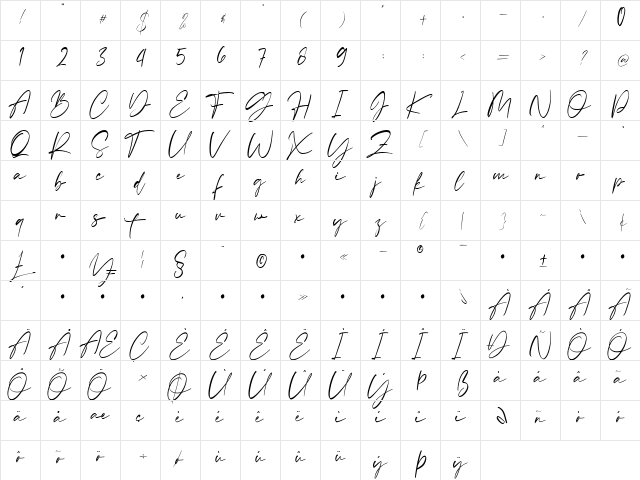 ! " # $ % & ' ( ) * + , - . / 0
1 2 3 4 5 6 7 8 9 : ; < = > ? @
A B C D E F G H I J K L M N O P
Q R S T U V W X Y Z [ \ ] ^ _ `
a b c d e f g h i j k l m n o p
q r s t u v w x y z { | } ~ ¢
£ • ¥ ¦ § ¨ © • « ¬ ® ¯ • ± • •
• • • • • » • • • • ¿ À Á Â Ã
Ä Å Æ Ç È É Ê Ë Ì Í Î Ï Ð Ñ Ò Ó
Ô Õ Ö × Ø Ù Ú Û Ü Ý Þ ß à á â ã
ä å æ ç è é ê ë ì í î ï ð ñ ò ó
ô õ ö ÷ ø ù ú û ü ý þ ÿ